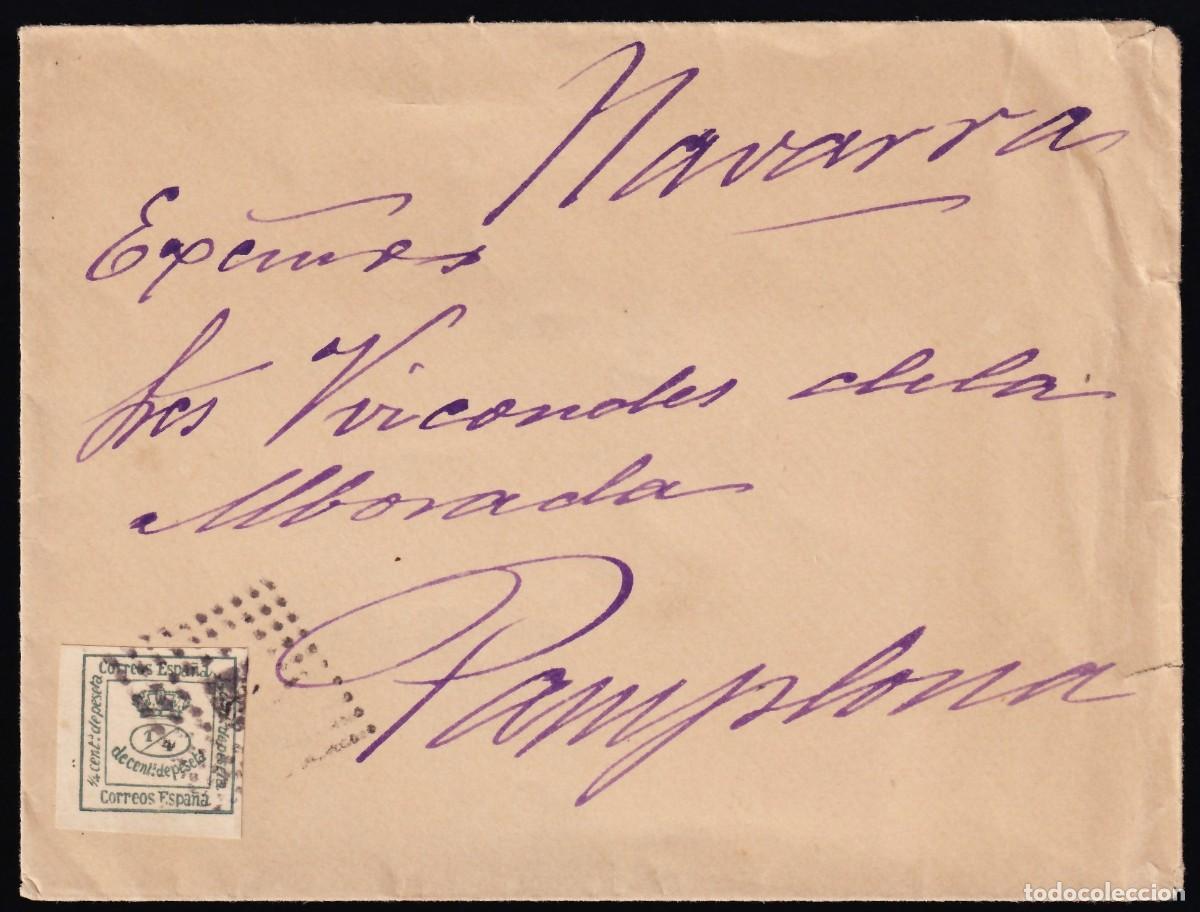 Navarra
Excmos
Sres Vizcondes de la
Alborada
Pamplona
Correos España
1/4 cent.s de peseta
1/4
de cent.s de peseta
Correos España
todocoleccion